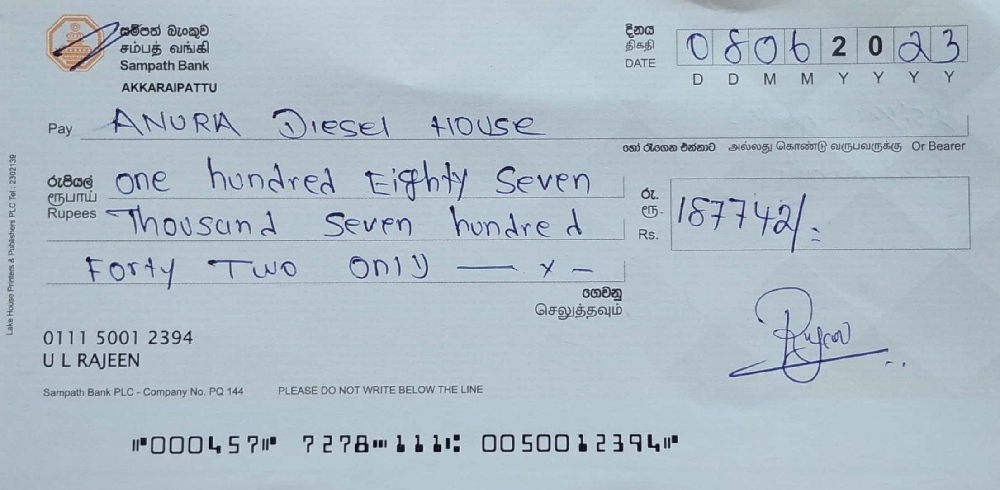 සම්පත් බැංකුව
சம்பத் வங்கி
Sampath Bank
AKKARAIPATTU
දිනය
திகதி
DATE
0 8 0 6 2 0 2 3
D D M M Y Y Y Y
Pay ANURA Diesel HOUSE
හෝ රැගෙන එන්නාට அல்லது கொண்டு வருபவருக்கு Or Bearer
රුපියල්
ரூபாய்
Rupees
one hundred Eighty Seven
Thousand Seven hundred
Forty Two only — x —
රු.
ரூ.
Rs.
187742/=
ගෙවනු
செலுத்தவும்
0111 5001 2394
U L RAJEEN
Sampath Bank PLC - Company No. PQ 144 PLEASE DO NOT WRITE BELOW THE LINE
⑈000457⑈ 7278⑉111⑆ 0050012394⑈
Lake House Printers & Publishers PLC Tel : 2302139